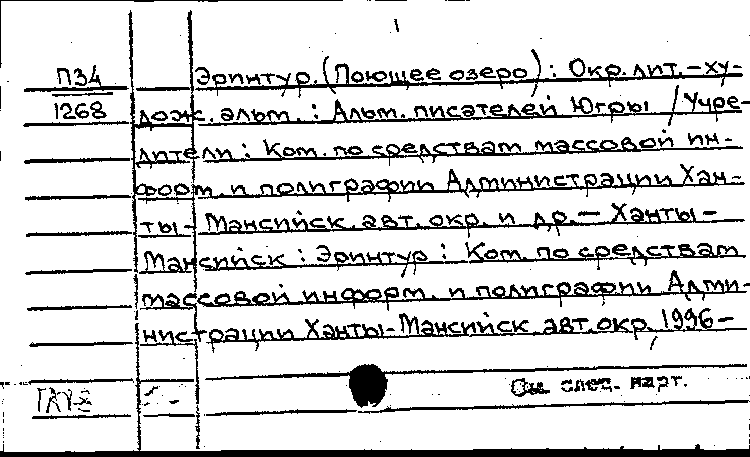 1
П34 Эринтур. (Поющее озеро) : Окр. лит.-ху-
1268 дож. альм. : Альм. писателей Югры / Учре-
дители : Ком. по средствам массовой ин-
форм. и полиграфии Администрации Хан-
ты-Мансийск. авт. окр. и др. – Ханты-
Мансийск : Эринтур : Ком. по средствам
массовой информ. и полиграфии Адми-
нистрации Ханты-Мансийск. авт. окр., 1996–
См. след. карт.